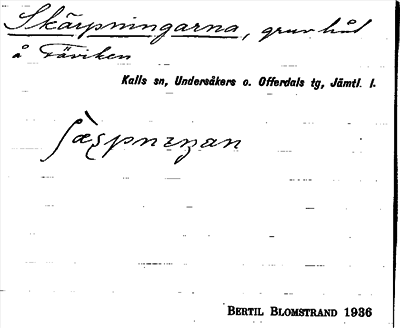 Skärpningarna, gruvhål
å Täviken
Kalls sn, Undersåkers o. Offerdals tg, Jämtl. l.
BERTIL BLOMSTRAND 1936